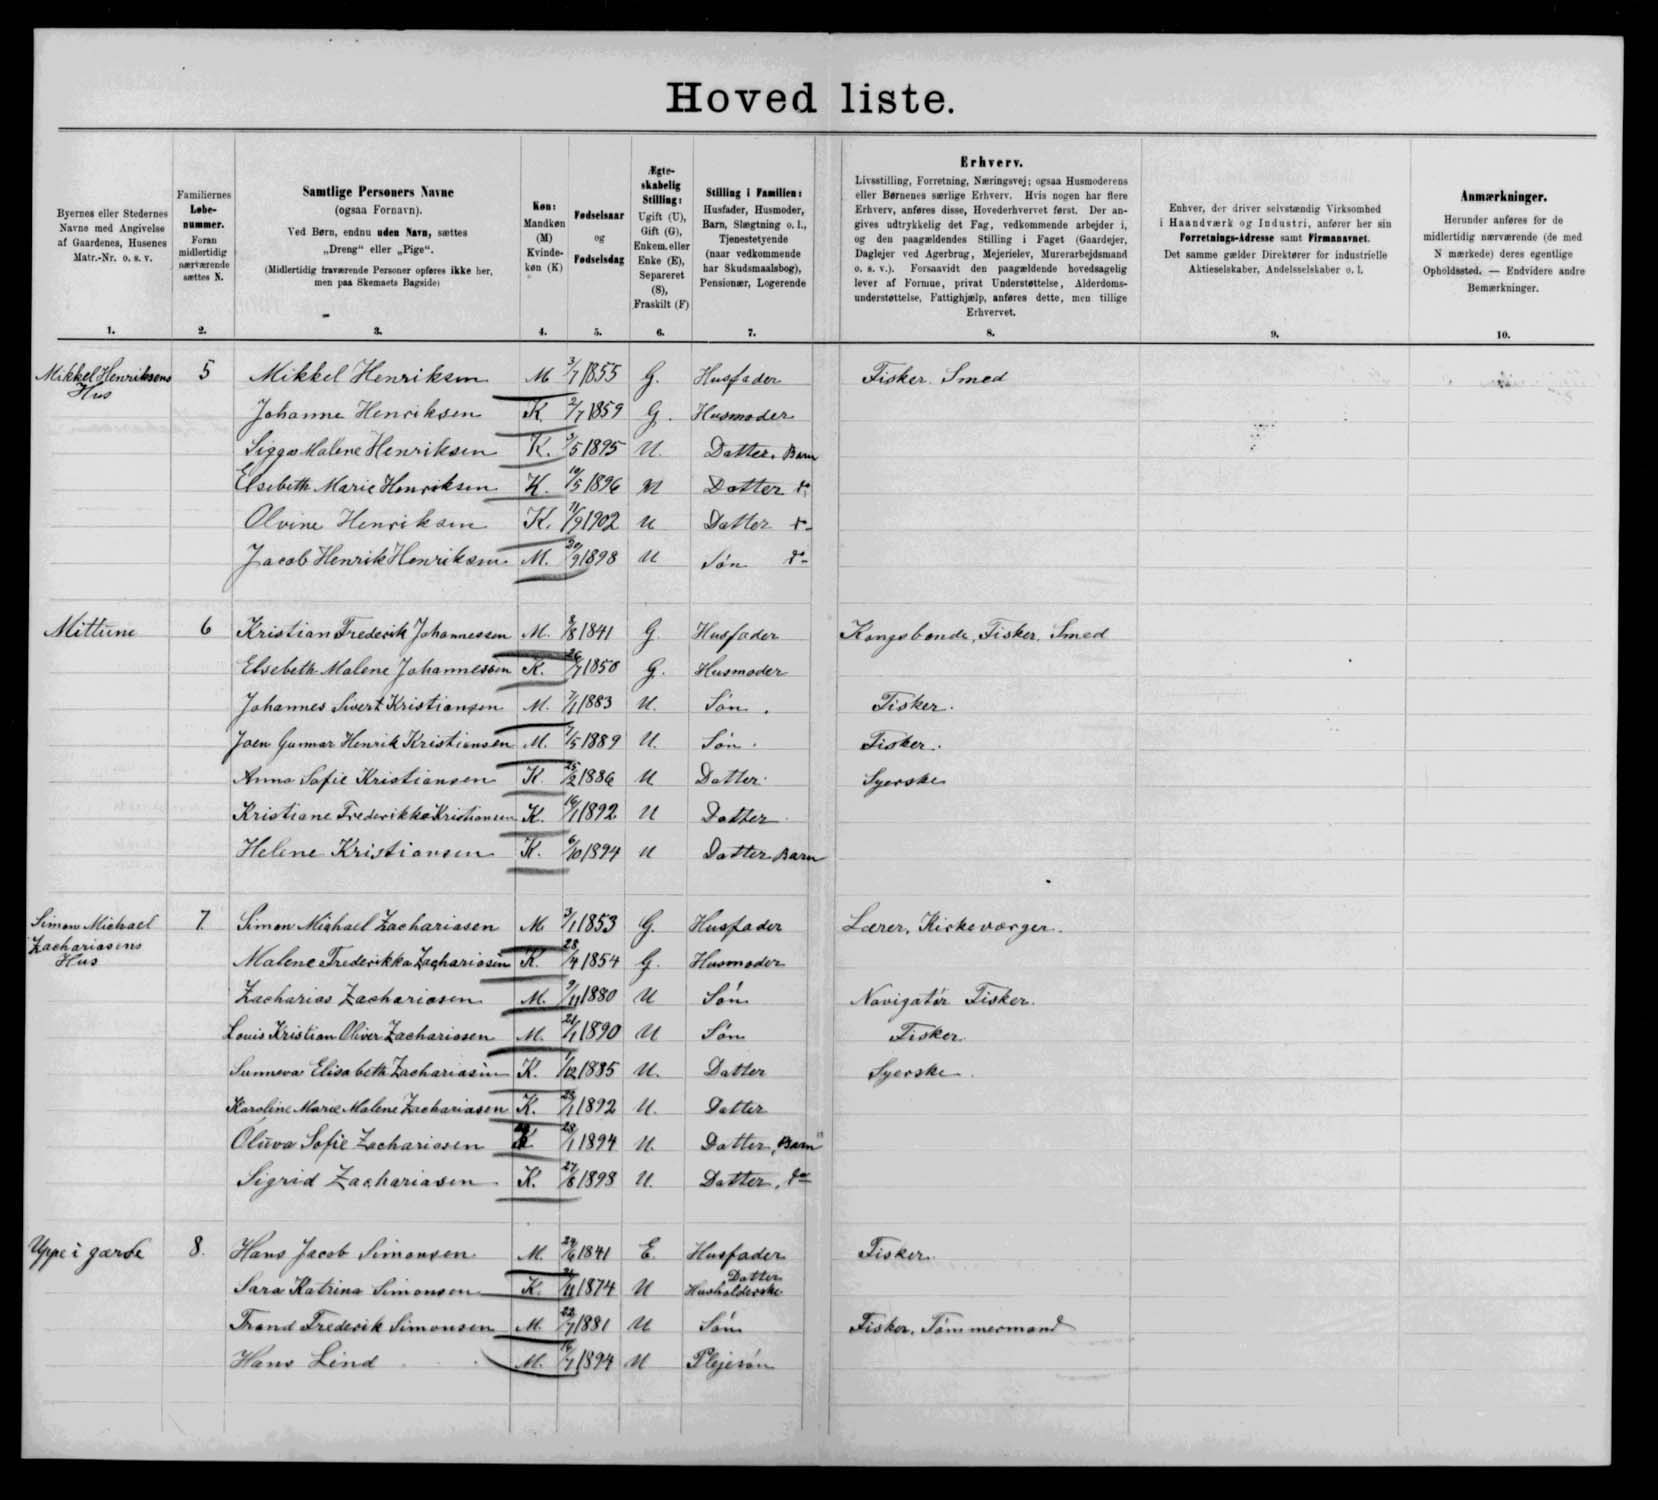 Hovedliste.
Byernes eller Stedernes
Navne med Angivelse
af Gaardenes, Husenes
Matr.-Nr. o. s. v.
1.
Familiernes
Løbe-
nummer.
Foran
midlertidig
nærværende
sættes N.
2.
Samtlige Personers Navne
(ogsaa Fornavn).
Ved Børn, endnu uden Navn, sættes
„Dreng“ eller „Pige“.
(Midlertidig fraværende Personer opføres ikke her,
men paa Skemaets Bagside)
3.
Køn:
Mandkøn
(M)
Kvinde-
køn (K)
4.
Fødselsaar
og
Fødselsdag
5.
Ægte-
skabelig
Stilling:
Ugift (U),
Gift (G),
Enkem. eller
Enke (E),
Separeret
(S),
Fraskilt (F)
6.
Stilling i Familien:
Husfader, Husmoder,
Barn, Slægtning o. l.,
Tjenestetyende
(naar vedkommende
har Skudsmaalsbog),
Pensionær, Logerende
7.
Erhverv.
Livsstilling, Forretning, Næringsvej; ogsaa Husmoderens
eller Børnenes særlige Erhverv. Hvis nogen har flere
Erhverv, anføres disse, Hovederhvervet først. Der an-
gives udtrykkelig det Fag, vedkommende arbejder i,
og den paagældendes Stilling i Faget (Gaardejer,
Daglejer ved Agerbrug, Mejerielev, Murerarbejdsmand
o. s. v.). Forsaavidt den paagældende hovedsagelig
lever af Formue, privat Understøttelse, Alderdoms-
understøttelse, Fattighjælp, anføres dette, men tillige
Erhvervet.
8.
Enhver, der driver selvstændig Virksomhed
i Haandværk og Industri, anfører her sin
Forretnings-Adresse samt Firmanavnet.
Det samme gælder Direktører for industrielle
Aktieselskaber, Andelsselskaber o. l.
9.
Anmærkninger.
Herunder anføres for de
midlertidig nærværende (de med
N mærkede) deres egentlige
Opholdssted. — Endvidere andre
Bemærkninger.
10.
Mikkel Henriksens 5 Mikkel Henriksen M 3/7 1855 G. Husfader Fisker. Smed
Hus
Johanne Henriksen K 2/7 1859 G. Husmoder
Henriksen K. /5 1895 U. Datter. Barn
Elsebeth Marie Henriksen K. 10/5 1896 U Datter do
Olvine Henriksen K. 11/9 1902 U Datter do
Jacob Henrik Henriksen M. 20/9 1898 U Søn do
Mittune 6 Kristian Frederik Johannessen M. 3/8 1841 G. Husfader Kongsbonde, Fisker. Smed
Elsebeth Malene Johannessen K. 26/7 1850 G. Husmoder
Johannes Sivert Kristiansen M. 7/1 1883 U. Søn. Fisker.
Joen Gunnar Henrik Kristiansen M. 7/5 1889 U. Søn. Fisker.
Anna Sofie Kristiansen K. 25/2 1886 U Datter. Syerske
Kristiane Frederikke Kristiansen K. 16/1 1892 U Datter
Helene Kristiansen K. 6/10 1894 U Datter Barn
Simon Michael 7. Simon Michael Zachariasen M. 3/1 1853 G. Husfader Lærer, Kirkeværger.
Zachariasens
Hus
Malene Frederikka Zachariasen K. 28/4 1854 G. Husmoder
Zacharias Zachariasen M. 9/11 1880 U Søn Navigatør Fisker.
Louis Kristian Oliver Zachariasen M. 21/1 1890 U Søn Fisker.
Sunneva Elisabeth Zachariasen K. 1/12 1885 U. Datter Syerske.
Karoline Marie Malene Zachariasen K. /1 1892 U. Datter
Oluva Sofie Zachariasen K 28/1 1894 U. Datter, Barn
Sigrid Zachariasen K. 27/8 1898 U. Datter, do
Uppe i garde 8. Hans Jacob Simonsen M. 24/6 1841 E. Husfader Fisker.
Sara Katrina Simonsen K. 21/11 1874 U Datter Husholderske
Trond Frederik Simonsen M. 22/7 1881 U Søn Fisker, Tømmermand
Hans Lind M. 16/7 1894 U Plejesøn